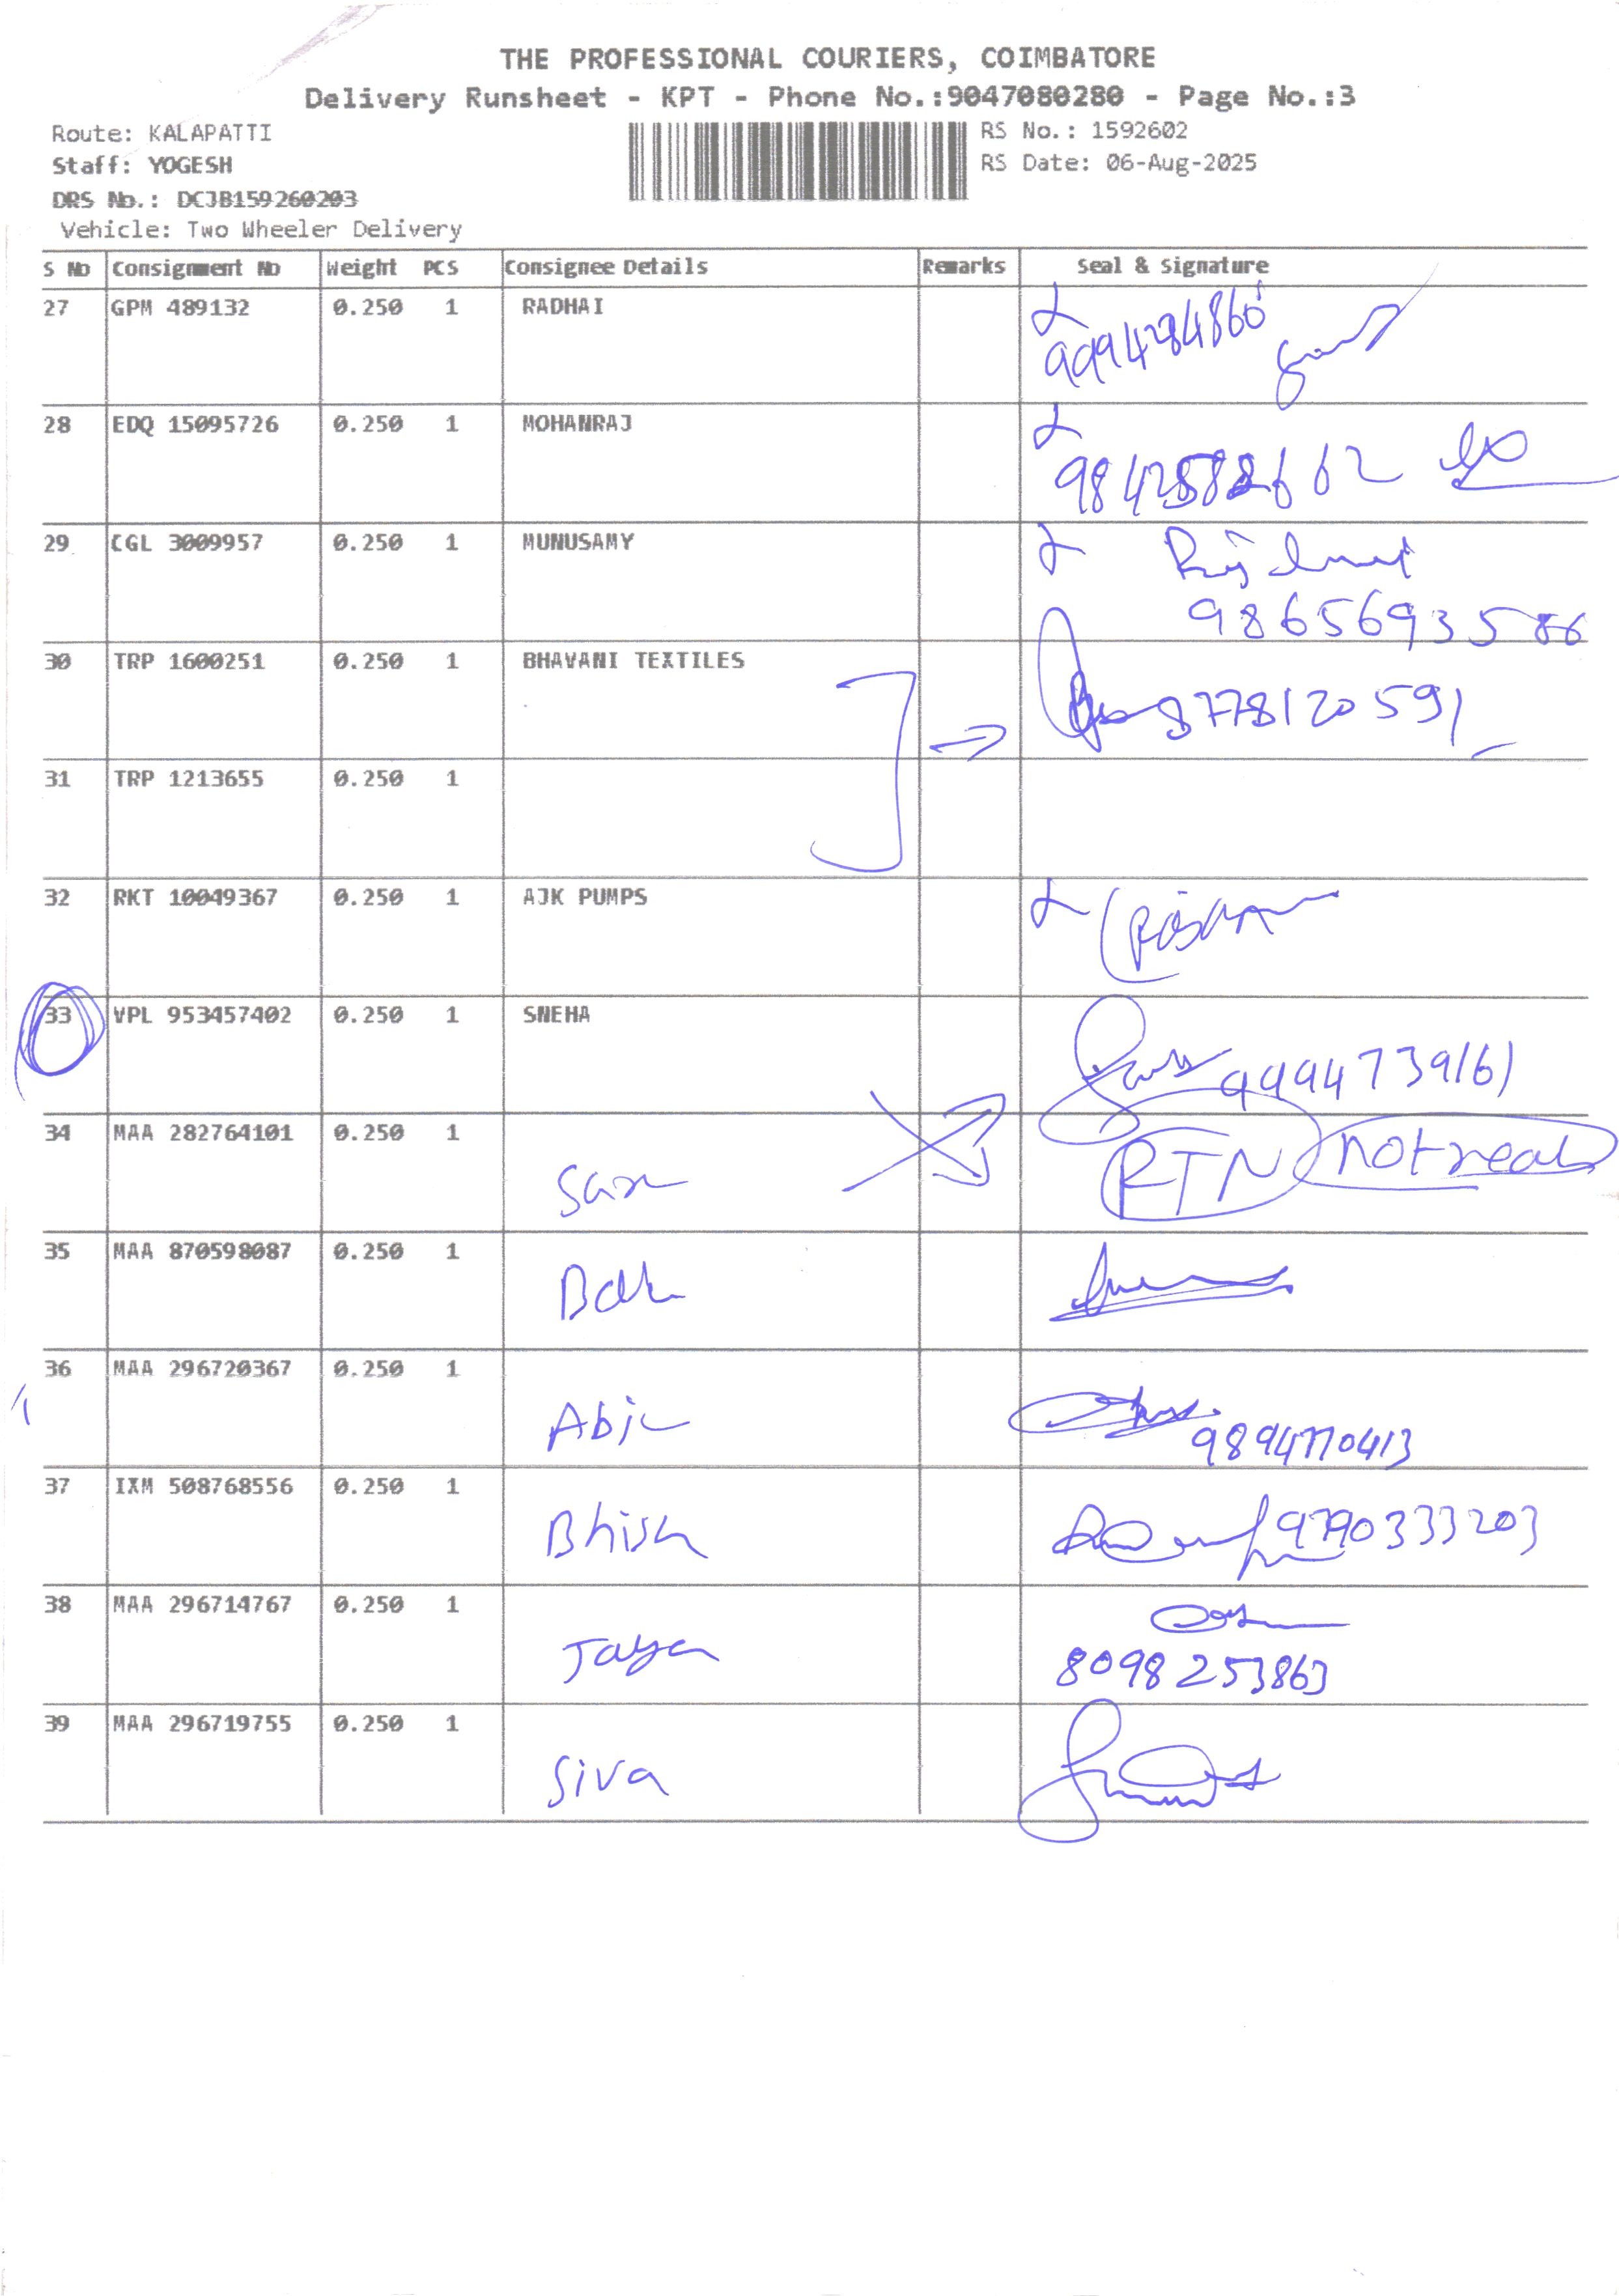 THE PROFESSIONAL COURIERS, COIMBATORE
Delivery Runsheet - KPT - Phone No.:9047080280 - Page No.:3
Route: KALAPATTI
RS No.: 1592602
Staff: YOGESH
RS Date: 06-Aug-2025
DRS No.: DCJB159260203
Vehicle: Two Wheeler Delivery
S No Consignment No Weight PCS Consignee Details Remarks Seal & Signature
27 GPM 489132 0.250 1 RADHAI
28 EDQ 15095726 0.250 1 MOHANRAJ
29 CGL 3009957 0.250 1 MUNUSAMY
30 TRP 1600251 0.250 1 BHAVANI TEXTILES
8778120591
31 TRP 1213655 0.250 1
32 RKT 10049367 0.250 1 AJK PUMPS
33 VPL 953457402 0.250 1 SNEHA
9994739161
34 MAA 282764101 0.250 1
RTN
35 MAA 870598087 0.250 1
36 MAA 296720367 0.250 1
37 IXM 508768556 0.250 1
9790333203
38 MAA 296714767 0.250 1
Jaya
8098253863
39 MAA 296719755 0.250 1
Siva